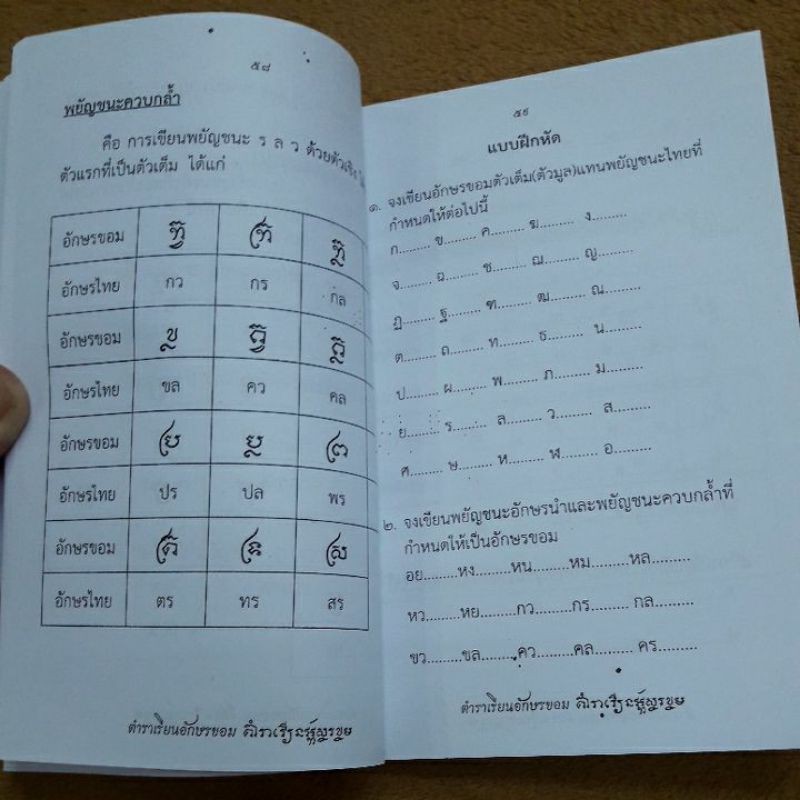 ๕๘
พยัญชนะควบกล้ำ
คือ การเขียนพยัญชนะ ร ล ว ด้วยตัวเชิง
ตัวแรกที่เป็นตัวเต็ม ได้แก่
อักษรขอม
อักษรไทย กว กร กล
อักษรขอม
อักษรไทย ขล คว คล
อักษรขอม
อักษรไทย ปร ปล พร
อักษรขอม
อักษรไทย ตร ทร สร
ตำราเรียนอักษรขอม
๕๙
แบบฝึกหัด
๑. จงเขียนอักษรขอมตัวเต็ม(ตัวมูล)แทนพยัญชนะไทยที่
กำหนดให้ต่อไปนี้
ก......... ข......... ค......... ฆ......... ง.........
จ......... ฉ......... ช......... ฌ......... ญ.........
ฏ......... ฐ......... ฑ......... ฒ......... ณ.........
ต......... ถ......... ท......... ธ......... น.........
ป......... ผ......... พ......... ภ......... ม.........
ย......... ร......... ล......... ว......... ส.........
ศ......... ษ......... ห......... ฬ......... อ.........
๒. จงเขียนพยัญชนะอักษรนำและพยัญชนะควบกล้ำที่
กำหนดให้เป็นอักษรขอม
อย.........หง.........หน.........หม.........หล.........
หว.........หย.........กว.........กร......... กล.........
ขว.........ขล.........คว.........คล......... คร.........
ตำราเรียนอักษรขอม